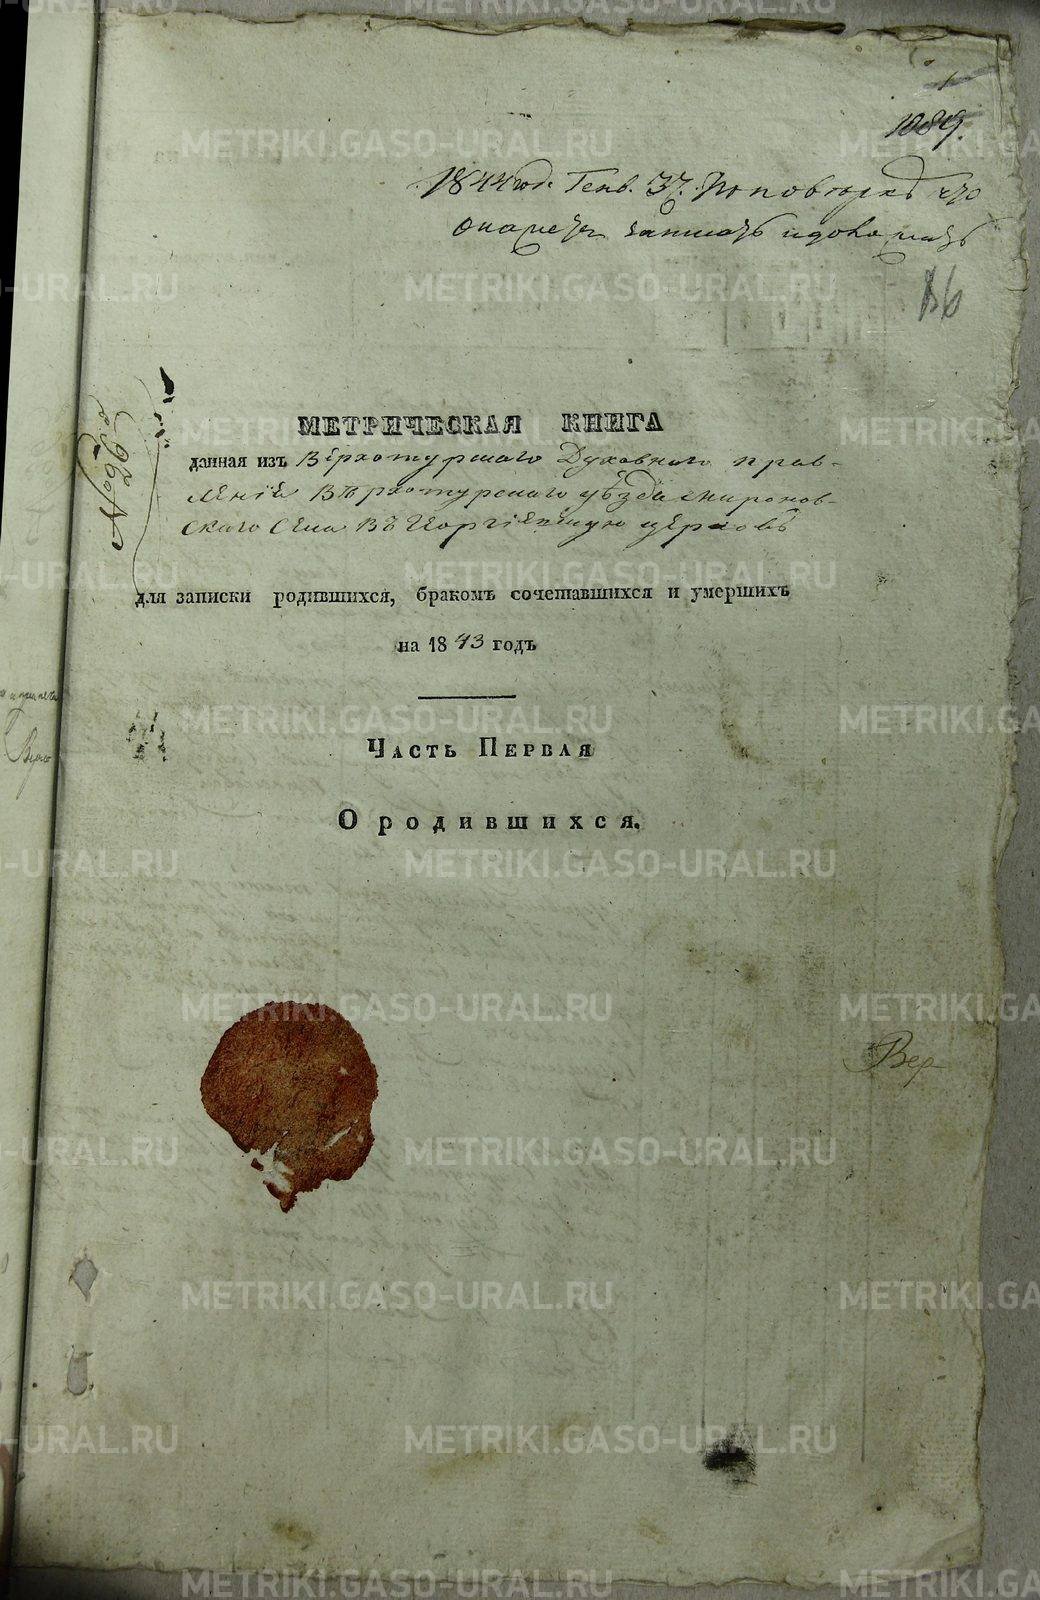 1089.
1844 год. Генв. 31. По поверке что
окажется записать и доложить
16
№ 26
МЕТРИЧЕСКАЯ КНИГА
данная изъ Верхотурскаго Духовнаго прав-
ленія Верхотурскаго уѣзда Миронов-
скаго Села въ Георгіевскую церковь
для записки родившихся, бракомъ сочетавшихся и умершихъ
на 1843 годъ
Часть Первая
О родившихся.
Вер
METRIKI.GASO-URAL.RU